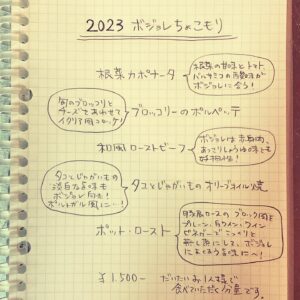 2023 ボジョレちょこもり
根菜カポナータ
根菜の甘味とトマト
バルサミコの酸味が
ボジョレに合う!
旬のブロッコリと
チーズをあわせて
イタリア風コロッケ!
ブロッコリーのポルペッテ
和風ローストビーフ
ボジョレは赤身肉、
あっさりしょうゆ味とも
好相性!
タコとじゃがいもの
淡白な旨味も
ボジョレ向き!
ポルトガル風に…!
タコとじゃがいものオリーブオイル焼
ポット・ロースト
肩ロースのブロック肉を
プルーン、白ワイン、ワイン
ビネガーでこっくりと
蒸し煮にして、ボジョレ
によくあう旨味に〜!
¥1,500− だいたいお1人様で
食べていただく分量です